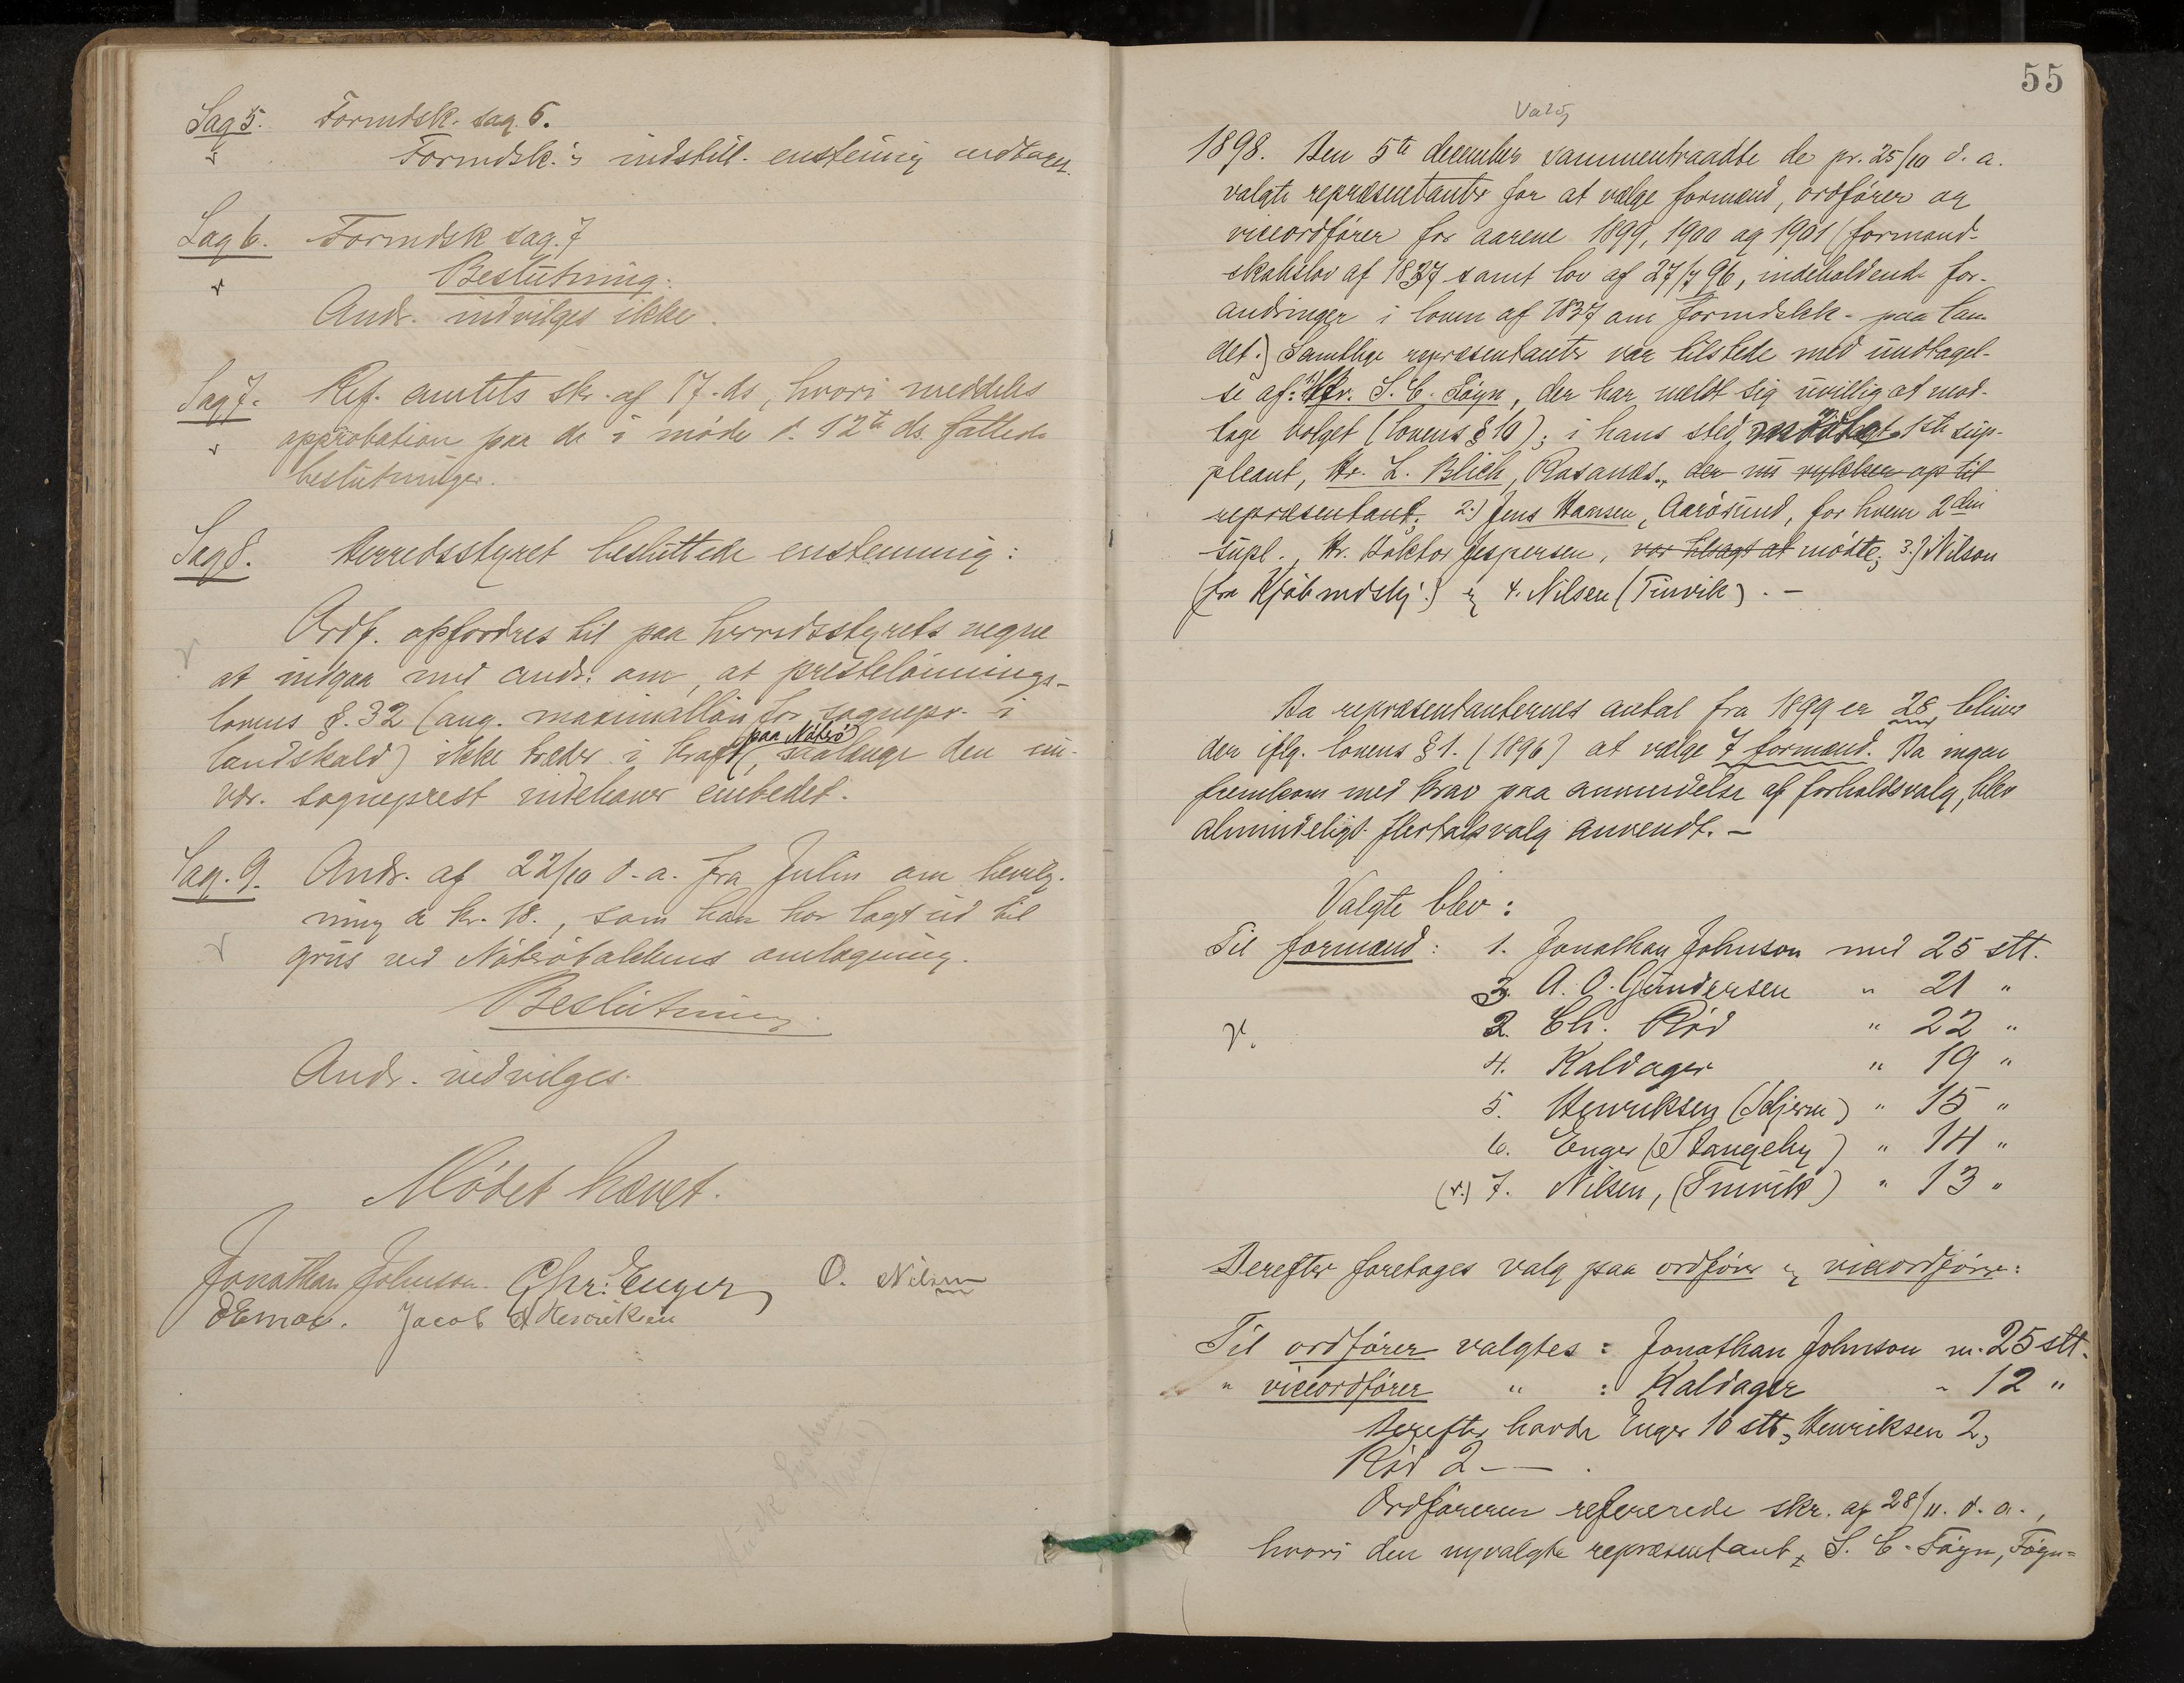 Sag 5. Formdsk. sag. 6.
Formdsk.'s indstill. enstemig vedtages.
Sag 6. Formdsk sag. 7
Beslutning:
Andr. indvilges ikke.
Sag 7. Ref. amtets skr. af 17. ds, hvori meddeles
approbation paa de i møde d. 12te ds. fattede
beslutninger.
Sag 8. Herredsstyret besluttede enstemmig:
Ordf. opfordres til paa herredsstyrets vegne
at indgaa med andr. om, at presteløinnings-
lovens §. 32 (ang. maximalløn for sognepr. i
paa Nøtrø
landskald) ikke træder i kraft, saalænge den nu-
vær. sogneprest indehaver embedet.
Sag. 9. Andr. af 22/10 d. a. fra Julin om bevilg-
ning a kr. 18., som han har lagt ud til
grus ved Nøtrøbakkens omlægning.
Beslutning.
Andr. indvilges.
Mødet hævet.
Jonathan Johnson. Chr. Enger O. Nilsen
Jacob A Henriksen
55
Valg
1898. Den 5te december sammentraadte de pr. 25/10 d. a.
valgte repræsentanter for at vælge formænd, ordfører og
viceordfører for aarene 1899, 1900 og 1901 (formand-
skabslov af 1837 samt lov af 27/7 96, indeholdende for-
andringer i loven af 1837 om formdskb. paa lan-
det.) Samtlige repræsentanter var tilstede med undtagel-
se af: 1) Hr. S. C. Føyn, der har meldt sig uvillig at mod-
tage valget (lovens § 10); i hans sted mødte 1ste sup-
pleant, Hr. L. Blich, Rosanes., der nu rykker op til
repræsentant; 2.) Jens Hansen, Aarøsund, for hvem 2den
supl., Hr. Doktor Jespersen, var tilsagt at mødte; 3.) Nilson
(fra Kjøbmdskj.) og 4. Nilsen (Tinvik). –
Da repræsentanternes antal fra 1899 er 28, bliver
der iflg. lovens § 1. (1896) at vælge 7 formænd. Da ingen
fremkom med krav paa anvendelse af forholdsvalg, blev
almindeligt flertalsvalg anvendt. –
Valgte blev:
Til formænd: 1. Jonathan Johnson med 25 stt.
3. A. O. Gundersen " 21 "
2. Ch. Rød " 22 "
4. Kaldager " 19 "
5. Henriksen (Skjerve) " 15 "
6. Enger (Stangeby) " 14 "
(v.) 7. Nilsen, (Tinvik) " 13 "
Derefter foretages valg paa ordfører og viceordfører:
Til ordfører valgtes: Jonathan Johnson m. 25 stt.
" viceordfører " : Kaldager " 12 "
Derefter havde Enger 10 stt, Henriksen 2,
Rød 2 – — .
Ordføreren refererede skr. af 28/11. d. a.,
hvori den nyvalgte repræsentant, S. C. Føyn, Føyn=